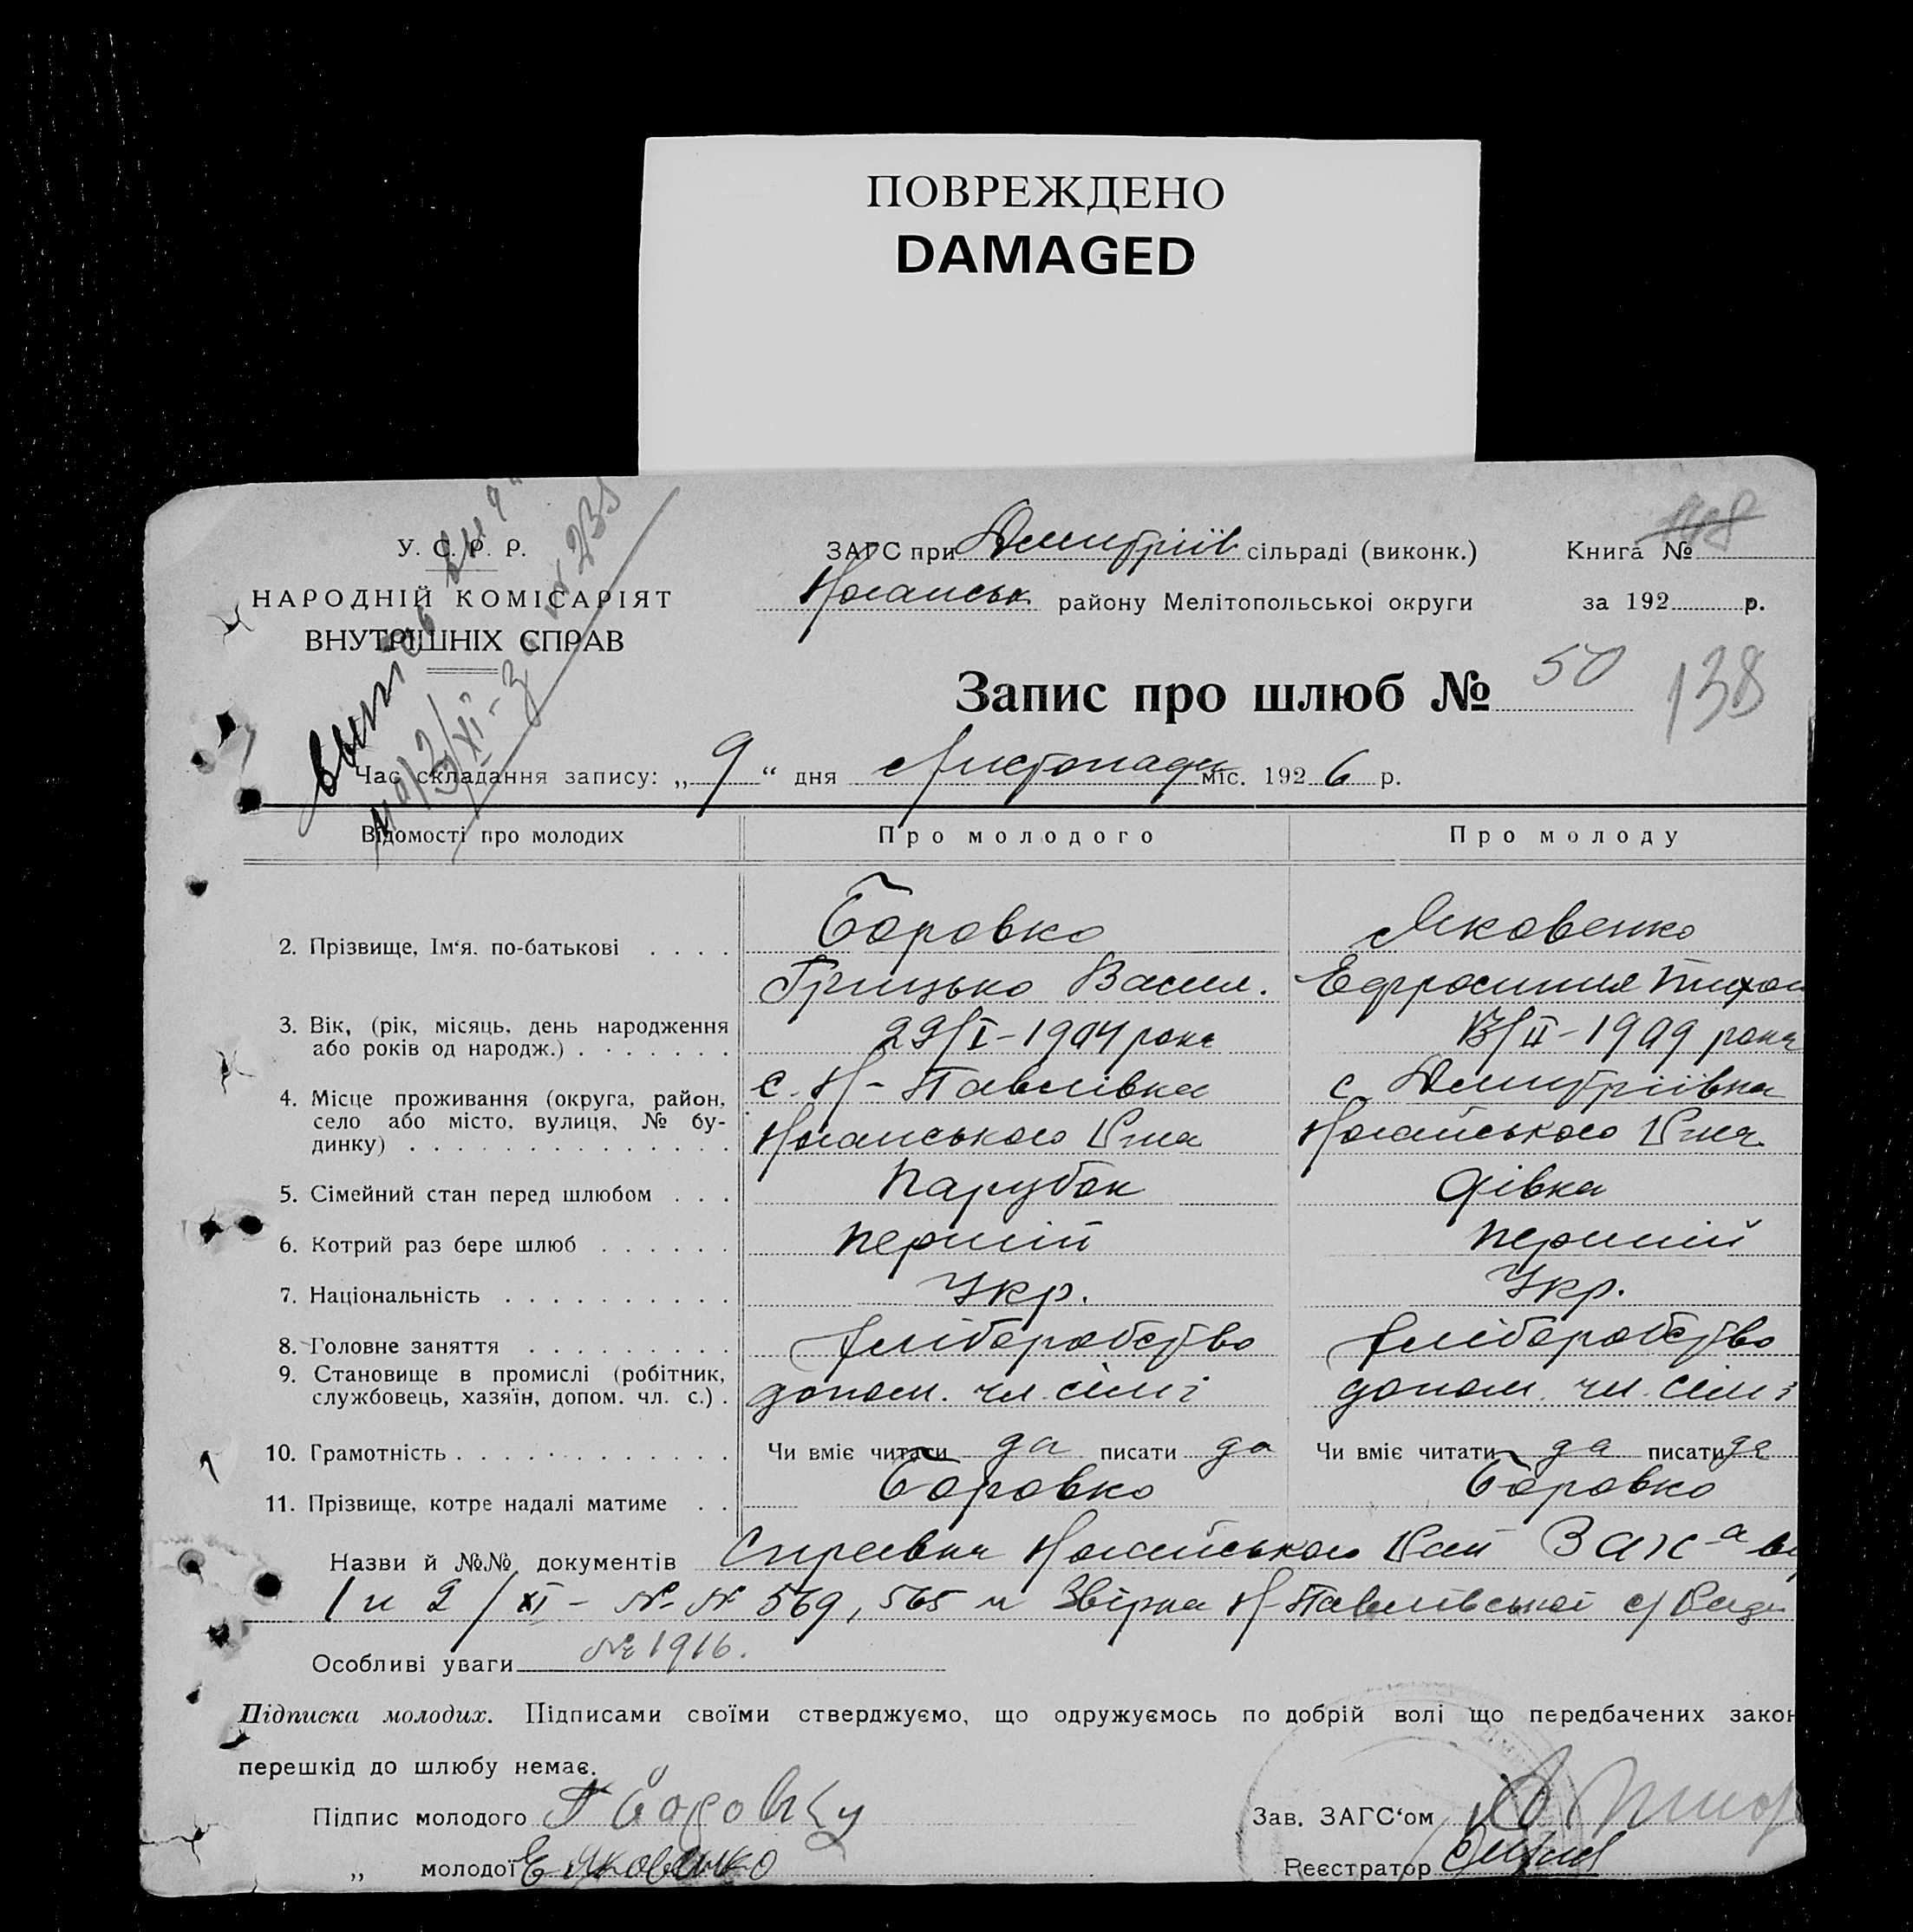 ПОВРЕЖДЕНО
DAMAGED
У. С. Р. Р.
НАРОДНІЙ КОМІСАРІЯТ
ВНУТРІШНІХ СПРАВ
ЗАГС при Дмитріїв сільраді (виконк.)
Ногайськ. району Мелітопольської округи
Книга №
за 192 р.
Запис про шлюб № 50
138
Час складання запису: „ 9 “ дня Листопада міс. 192 6 р.
Відомості про молодих
Про молодого
Про молоду
2. Прізвище, Ім‘я. по-батькові . . . . Боровко Яковенко
Грицько Васил. Ефросиния Тихон
3. Вік, (рік, місяць, день народження
або років од народж.) . . . . . . . 29/I - 1904 рока 13/II - 1909 рока
4. Місце проживання (округа, район,
село або місто, вулиця, № бу-
динку) . . . . . . . . . . . . . .
с. Н-Павлівка с. Дмитріївка
Ногайського Р-на Ногайського Р-на
5. Сімейний стан перед шлюбом . . . Парубок дівка
6. Котрий раз бере шлюб . . . . . . перший перший
7. Національність . . . . . . . . . . Укр. Укр.
8. Головне заняття . . . . . . . . . хліборобство хліборобство
9. Становище в промислі (робітник,
службовець, хазяїн, допом. чл. с.) .
допом. чл. сімї допом. чл. сімї
10. Грамотність . . . . . . . . . . . . Чи вміє читати да писати да Чи вміє читати да писати да
11. Прізвище, котре надалі матиме . . Боровко Боровко
Назви й №№ документів Справки Ногайського Рай ЗАГС-а
1 и 2/XI - № № 569, 565 и Звірка Н-Павлівської с/Ради
Особливі уваги № 1916.
Підписка молодих. Підписами своїми стверджуємо, що одружуємось по добрій волі що передбачених закон
перешкід до шлюбу немає.
Підпис молодого Г Боровку
„ молодої Е Яковенко
Зав. ЗАГС‘ом
Реєстратор